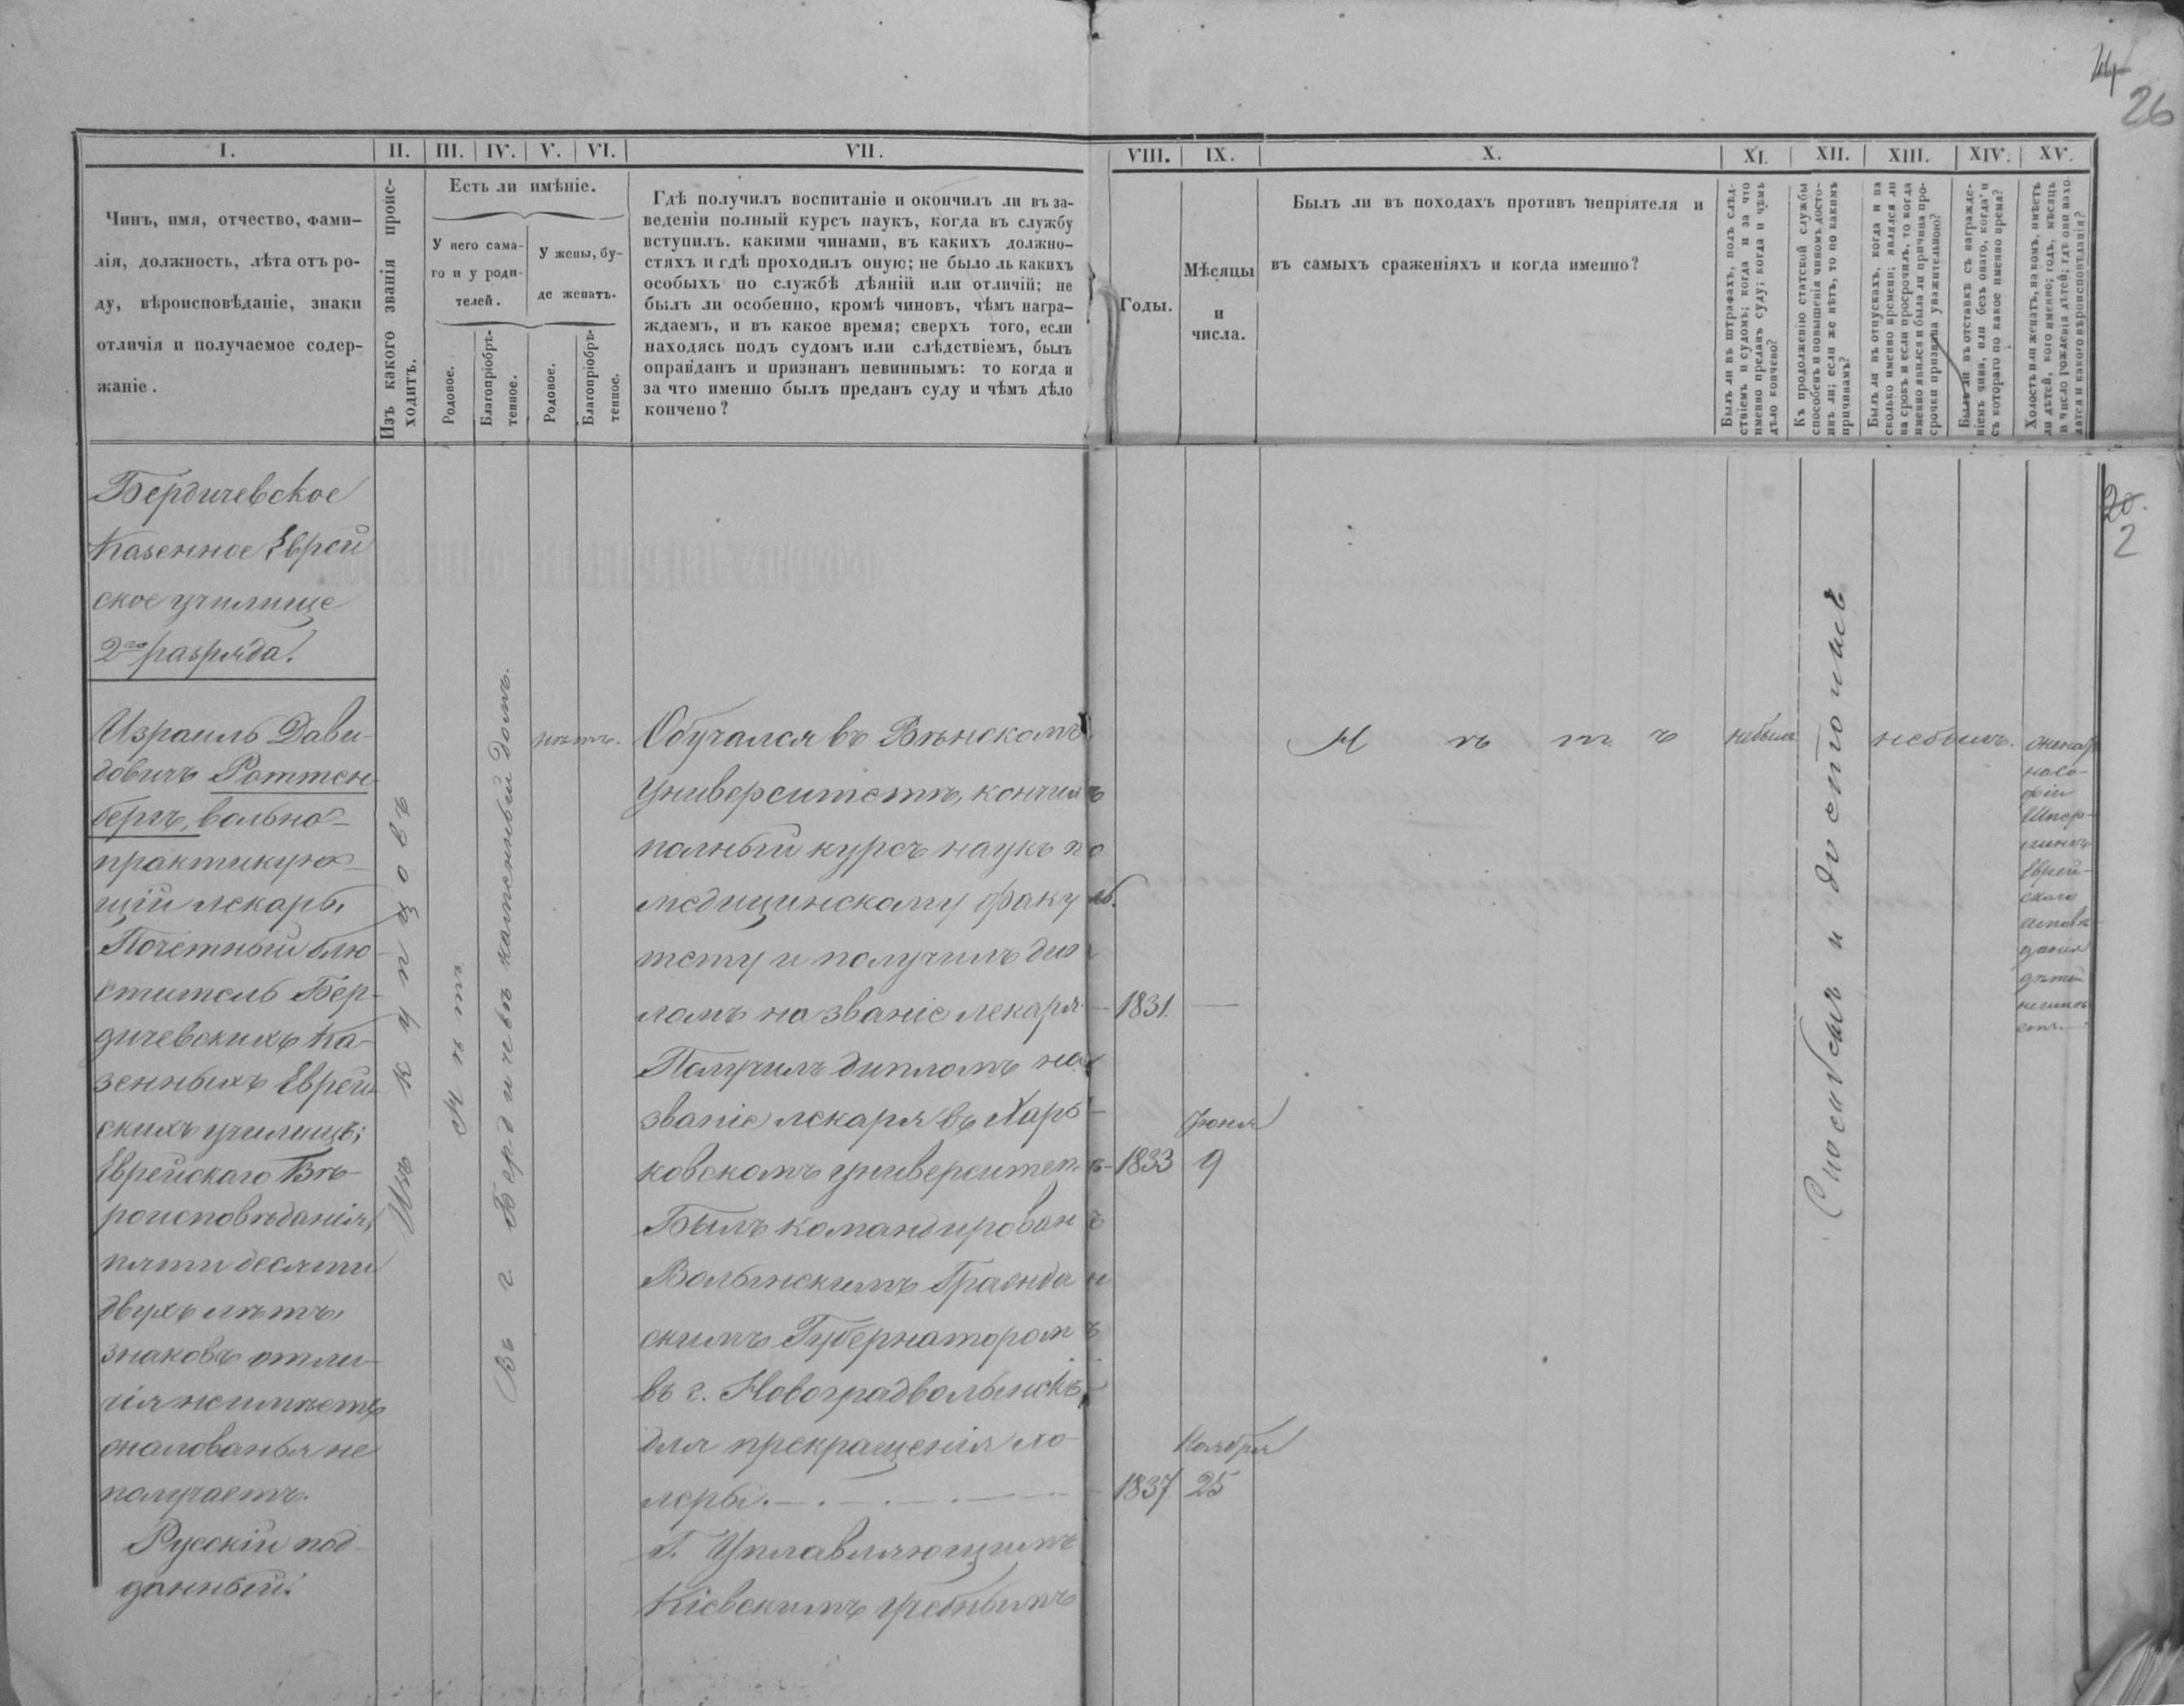 24
26
I.
II.
III.
IV.
V.
VI.
VII.
VIII.
IX.
X.
XI.
XII.
XIII.
XIV.
XV.
Чинъ, имя, отчество, фами-
лія, должность, лѣта отъ ро-
ду, вѣроисповѣданіе, знаки
отличія и получаемое содер-
жаніе.
Изъ какого званія проис-
ходитъ.
Есть ли имѣніе.
У него сама-
го и у роди-
телей.
У жены, бу-
де женатъ.
Родовое.
Благопріобрѣ-
тенное.
Родовое.
Благопріобрѣ-
тенное.
Гдѣ получилъ воспитаніе и окончилъ ли въ за-
веденіи полный курсъ наукъ, когда въ службу
вступилъ. какими чинами, въ какихъ должно-
стяхъ и гдѣ проходилъ оную; не было ль какихъ
особыхъ по службѣ дѣяній или отличій; не
былъ ли особенно, кромѣ чиновъ, чѣмъ награ-
ждаемъ, и въ какое время; сверхъ того, если
находясь подъ судомъ или слѣдствіемъ, былъ
оправданъ и признанъ невиннымъ: то когда и
за что именно былъ преданъ суду и чѣмъ дѣло
кончено?
Годы.
Мѣсяцы
и
числа.
Былъ ли въ походахъ противъ непріятеля и
въ самыхъ сраженіяхъ и когда именно?
Былъ ли въ штрафахъ, подъ слѣд-
ствіемъ и судомъ; когда и за что
именно преданъ суду; когда и чѣмъ
дѣло кончено?
Къ продолженію статской службы
способенъ и повышенія чиномъ досто-
инъ ли; если же нѣтъ, то по какимъ
причинамъ?
Былъ ли въ отпускахъ, когда и на
сколько именно времени; являлся ли
на срокъ и если просрочилъ, то когда
именно явился и была ли причина про-
срочки признана уважительною?
Былъ ли въ отставкѣ съ награжде-
ніемъ чина, или безъ онаго, когда и
съ котораго по какое именно время?
Холостъ или женатъ, на комъ, имѣетъ
ли дѣтей, кого именно; годъ, мѣсяцъ
и число рожденія дѣтей; гдѣ они нахо-
дятся и какого вѣроисповѣданія?
Бердичевское
Казенное Еврей
ское училище
2го разряда.
20.
2
Израиль Дави-
довичъ Роттен-
бергъ, вольно-
практикую-
щій лекарь,
Почетный блю-
ститель Бер-
дичевскихъ Ка-
зенныхъ Еврей-
скихъ училищъ;
Еврейскаго Вѣ-
роисповѣданія,
пятидесяти
двухъ лѣтъ,
знаковъ отли-
чія неимѣетъ
жалованья не
получаетъ.
Русскій под-
данный.
Изъ купцовъ
Нѣтъ
Въ г. Бердичевѣ каменный домъ.
нѣтъ.
Обучался въ Вѣнскомъ
Университетѣ, кончилъ
полный курсъ наукъ по
медицинскому факуль.
тету и получилъ дип
ломъ на званіе лекаря
1831.
Получилъ дипломъ на
званіе лекаря въ Харь-
ковскомъ университетѣ
1833
Іюня
9
Былъ командированъ
Волынскимъ Граждан
скимъ Губернаторомъ
въ г. Новоградволынскъ,
для прекращенія хо-
леры.
1837
Ноября
25
Г. Управляющимъ
Кіевскимъ учебнымъ
Нѣтъ
небылъ
Способенъ и достоинъ
небылъ.
женатъ
на Со-
фіи
Еврей-
скаго
исповѣ-
данія
дѣтей
неимѣ-
етъ.